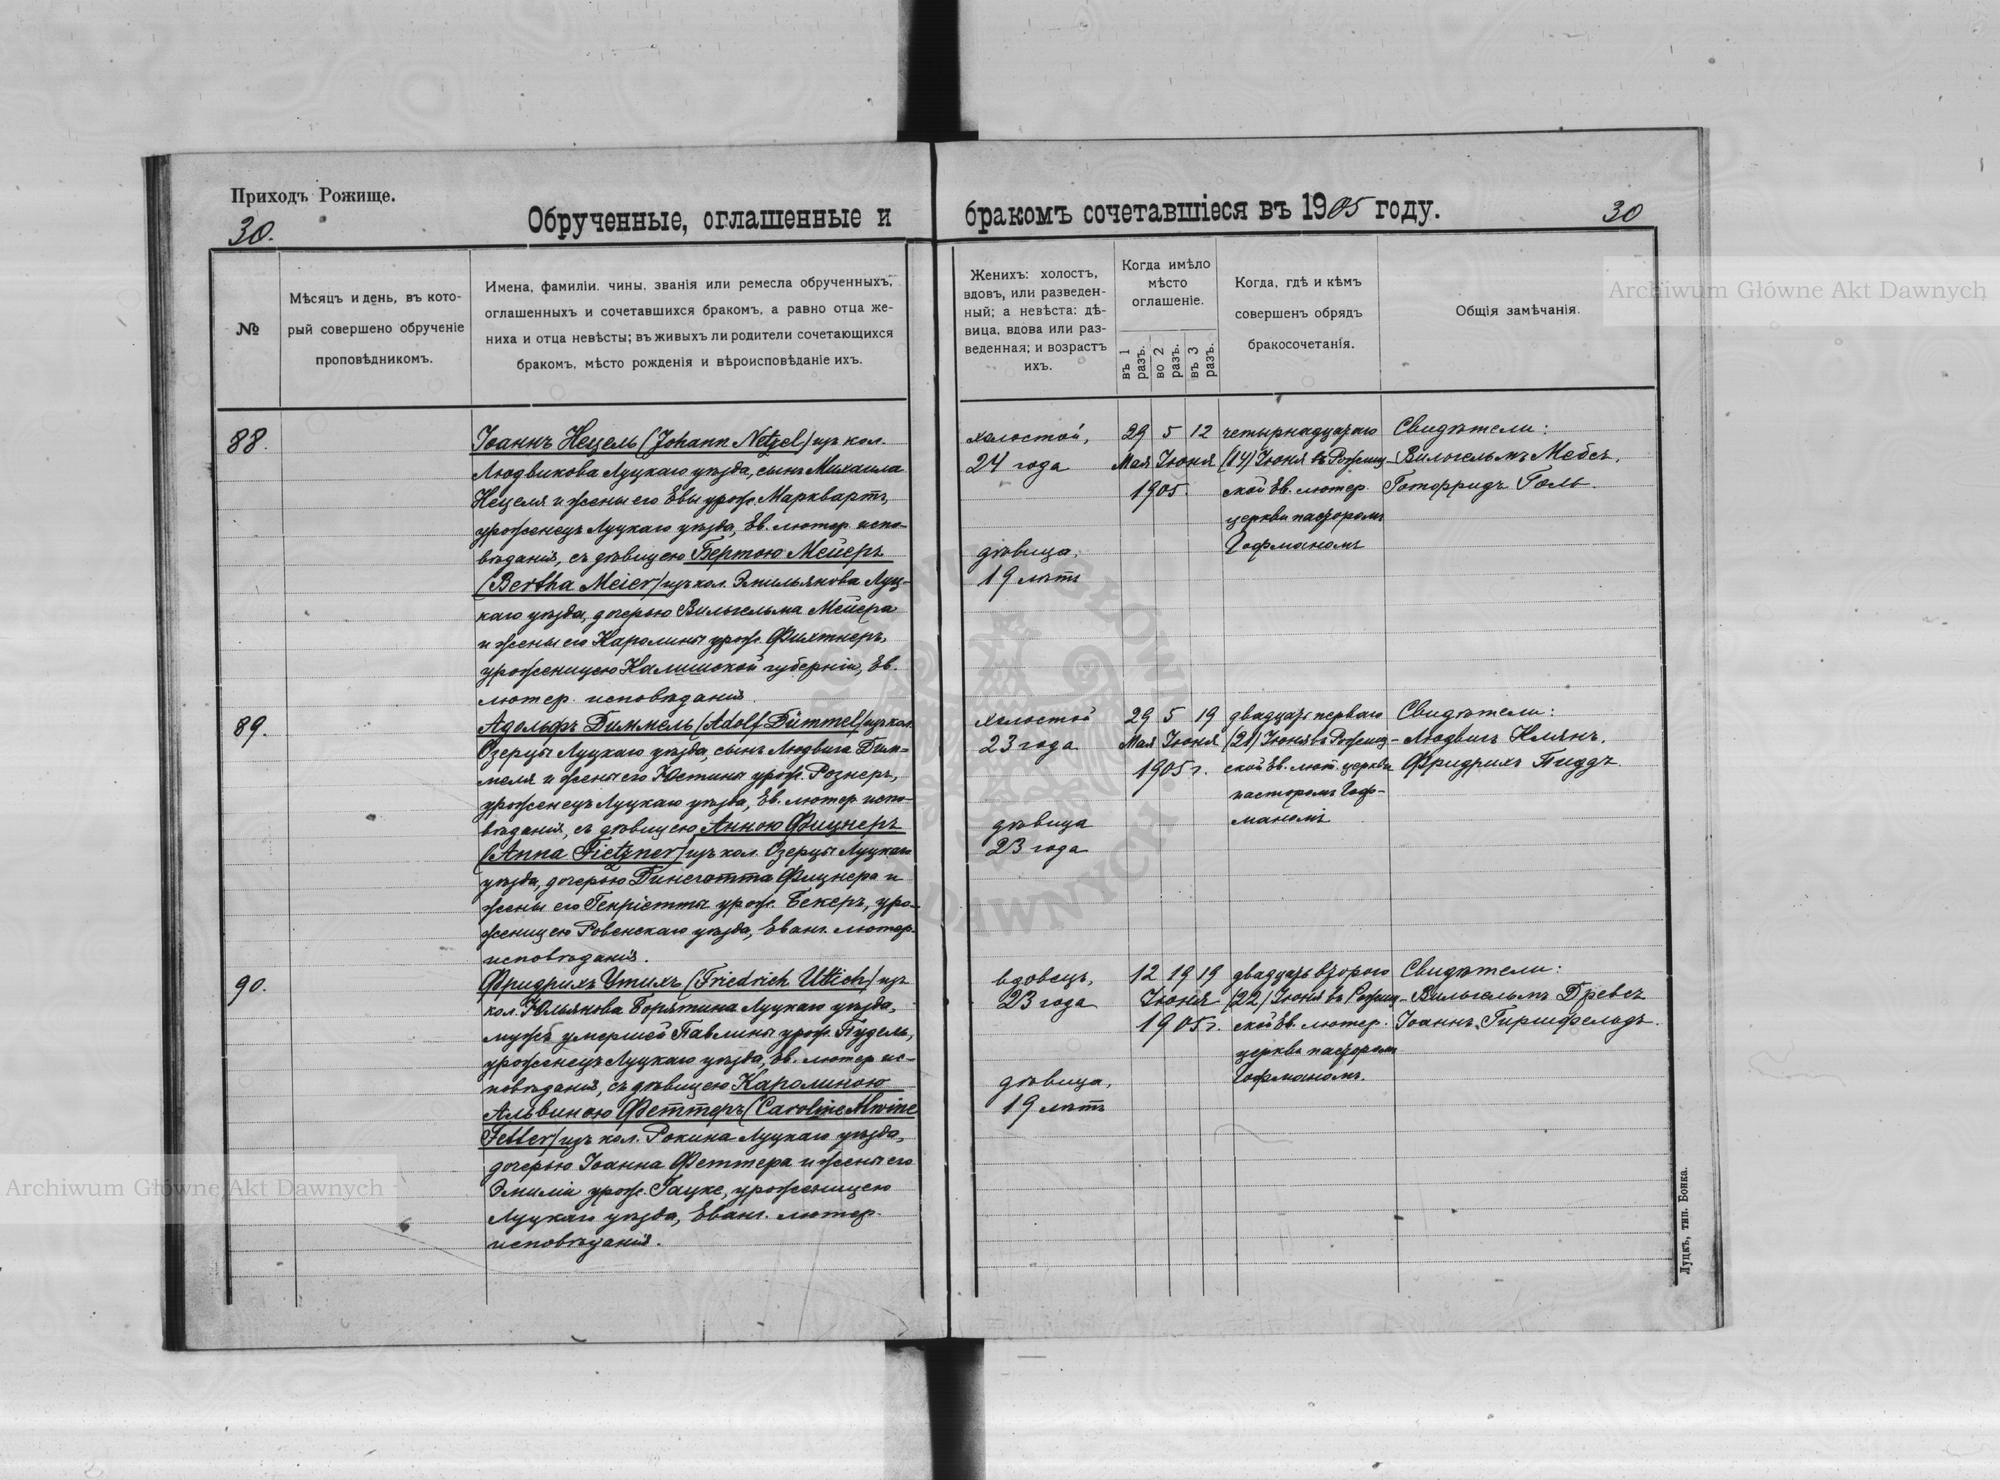 Приходъ Рожище.
30.
Обрученные, оглашенные и
бракомъ сочетавшіеся въ 1905 году.
30
№
Мѣсяцъ и день, въ кото-
рый совершено обрученіе
проповѣдникомъ.
Имена, фамиліи, чины, званія или ремесла обрученныхъ,
оглашенныхъ и сочетавшихся бракомъ, а равно отца же-
ниха и отца невѣсты; въ живыхъ ли родители сочетающихся
бракомъ, мѣсто рожденія и вѣроисповѣданіе ихъ.
Женихъ: холостъ,
вдовъ, или разведен-
ный; а невѣста: дѣ-
вица, вдова или раз-
веденная; и возрастъ
ихъ.
Когда имѣло
мѣсто
оглашеніе.
въ 1 разъ.
во 2 разъ.
въ 3 разъ.
Когда, гдѣ и кѣмъ
совершенъ обрядъ
бракосочетанія.
Общія замѣчанія.
Archiwum Główne Akt Dawnych
88.
Іоаннъ Нецель (Johann Netzel) изъ кол.
Людвикова Луцкаго уѣзда, сынъ Михаила
Нецеля и жены его Евы урож. Марквартъ,
уроженецъ Луцкаго уѣзда, Ев. лютер. испо-
вѣданія, съ дѣвицею Бертою Мейеръ
(Bertha Meier) изъ кол. Эмильянова Луц-
каго уѣзда, дочерью Вильгельма Мейера
и жены его Каролины урож. Фихтнеръ,
уроженицею Калишской губерніи, Ев.
лютер. исповѣданія.
холостой,
24 года
дѣвица,
19 лѣтъ
29 5 12
Мая Іюня
1905.
четырнадцатаго
(14) Іюня въ Рожищ-
ской Ев. лютер.
церкви пасторомъ
Гофманомъ
Свидѣтели:
Вильгельмъ Мебсъ,
Готфридъ Голь.
89.
Адольфъ Диммель (Adolf Dümmel) изъ кол.
Озерцы Луцкаго уѣзда, сынъ Людвига Дим-
меля и жены его Юстины урож. Рознеръ,
уроженецъ Луцкаго уѣзда, Ев. лютер. испо-
вѣданія, съ дѣвицею Анною Фицнеръ
(Anna Fietzner) изъ кол. Озерцы Луцкаго
уѣзда, дочерью Фицнера и
жены его Генріетты урож. Бекеръ, уро-
женицею Ровенскаго уѣзда, Еванг. лютер.
исповѣданія.
холостой
23 года
дѣвица
23 года
29 5 19
Мая Іюня
1905 г.
двадцать перваго
(21) Іюня въ Рожищ-
ской Ев. лют. церкви
пасторомъ Гоф-
маномъ
Свидѣтели:
Людвигъ Клянъ,
Фридрихъ Пиддъ.
90.
Фридрихъ Утихъ (Friedrich Uttich) изъ
кол. Юльянова Борятина Луцкаго уѣзда,
мужъ умершей Павлины урож. Пудель,
уроженецъ Луцкаго уѣзда, Ев. лютер. ис-
повѣданія, съ дѣвицею Каролиною
Альвиною Феттеръ (Caroline Alwine
Fetter) изъ кол. Рокина Луцкаго уѣзда,
дочерью Іоанна Феттера и жены его
Эмиліи урож. Гауке, уроженицею
Луцкаго уѣзда, Еванг. лютер.
исповѣданія.
вдовецъ,
23 года
дѣвица,
19 лѣтъ
12 19 19
Іюня
1905 г.
двадцать второго
(22) Іюня въ Рожищ-
ской Ев. лютер.
церкви пасторомъ
Гофманомъ.
Свидѣтели:
Вильгельмъ Древсъ
Іоаннъ Гиршфельдъ.
Archiwum Główne Akt Dawnych
Луцкъ, тип. Бонка.